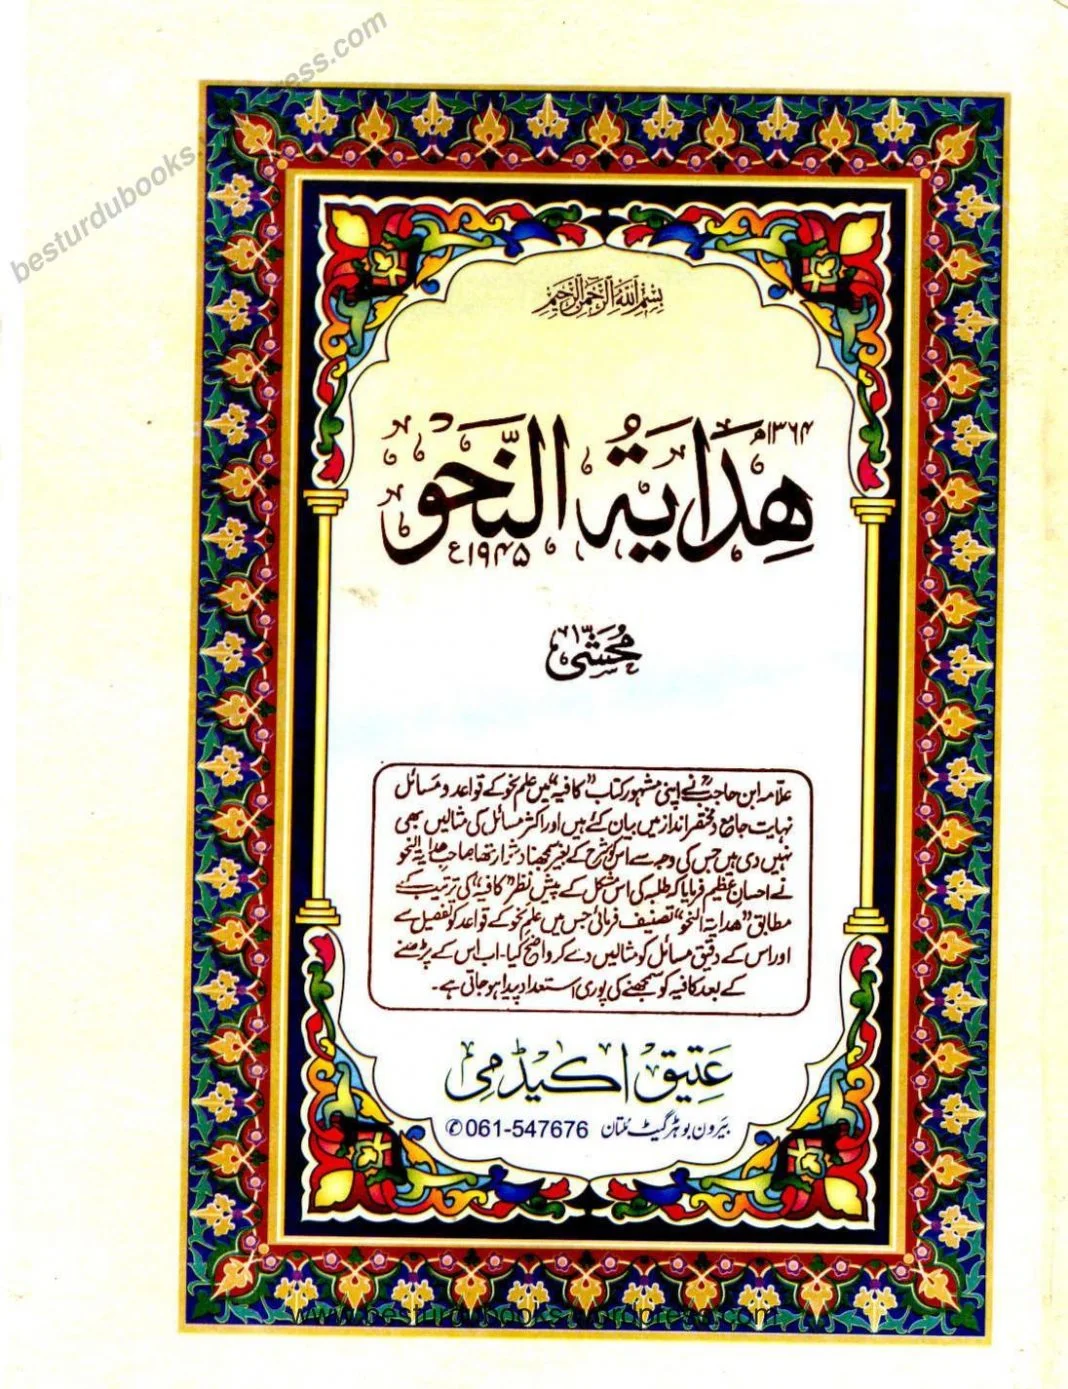 besturdubooks.
ess.com
بِسْمِ اللّٰهِ الرَّحْمٰنِ الرَّحِيْمِ
۱۳۶۴ھ
هِدَايَةُ النَّحْو
۱۹۴۵ء
مُحَشّٰی
علامہ ابن حاجبؒ نے اپنی مشہور کتاب ”کافیہ“ میں علم نحو کے قواعد و مسائل
نہایت جامع و مختصر انداز میں بیان کئے ہیں اور اکثر مسائل کی مثالیں بھی
نہیں دی ہیں جس کی وجہ سے اس کو شرح کے بغیر سمجھنا دشوار تھا صاحب ھدایۃ النحو
نے احسانِ عظیم فرمایا کہ طلبہ کی اس مشکل کے پیشِ نظر ”کافیہ“ کی ترتیب کے
مطابق ”ھدایۃ النحو“ تصنیف فرمائی جس میں علمِ نحو کے قواعد کو تفصیل سے
اور اس کے دقیق مسائل کو مثالیں دے کر واضح کیا۔ اب اس کے پڑھنے
کے بعد کافیہ کو سمجھنے کی پوری استعداد پیدا ہو جاتی ہے۔
عَتِیق اکیڈمی
بیرون بوہڑ گیٹ مُلتان ✆ 061-547676
www.besturdubooks.wordpress.com